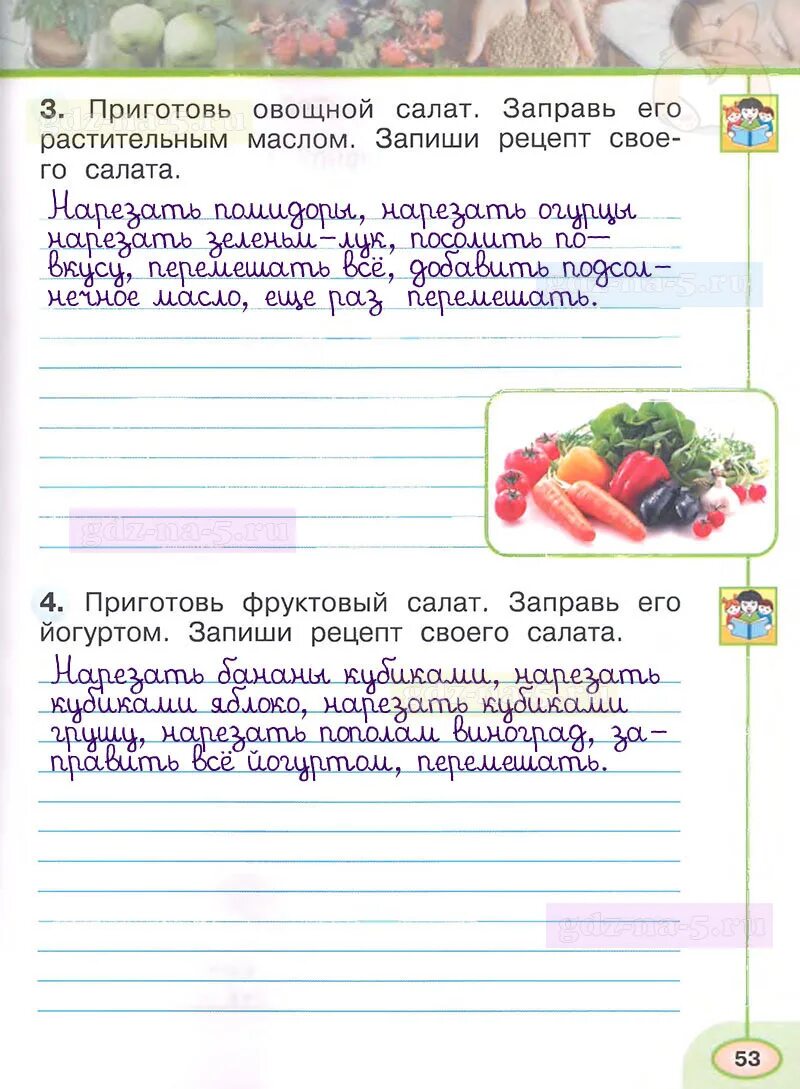 3. Приготовь овощной салат. Заправь его
растительным маслом. Запиши рецепт свое-
го салата.
gdz-na-5.ru
Нарезать помидоры, нарезать огурцы
нарезать зеленьм-лук, посолить по-
вкусу, перемешать всё, добавить подсол-
нечное масло, еще раз перемешать.
gdz-na-5.ru
gdz-na-5.ru
4. Приготовь фруктовый салат. Заправь его
йогуртом. Запиши рецепт своего салата.
Нарезать бананы кубиками, нарезать
кубиками яблоко, нарезать кубиками
gdz-na-5.ru
грушу, нарезать пополам виноград, за-
править всё йогуртом, перемешать.
gdz-na-5.ru
53